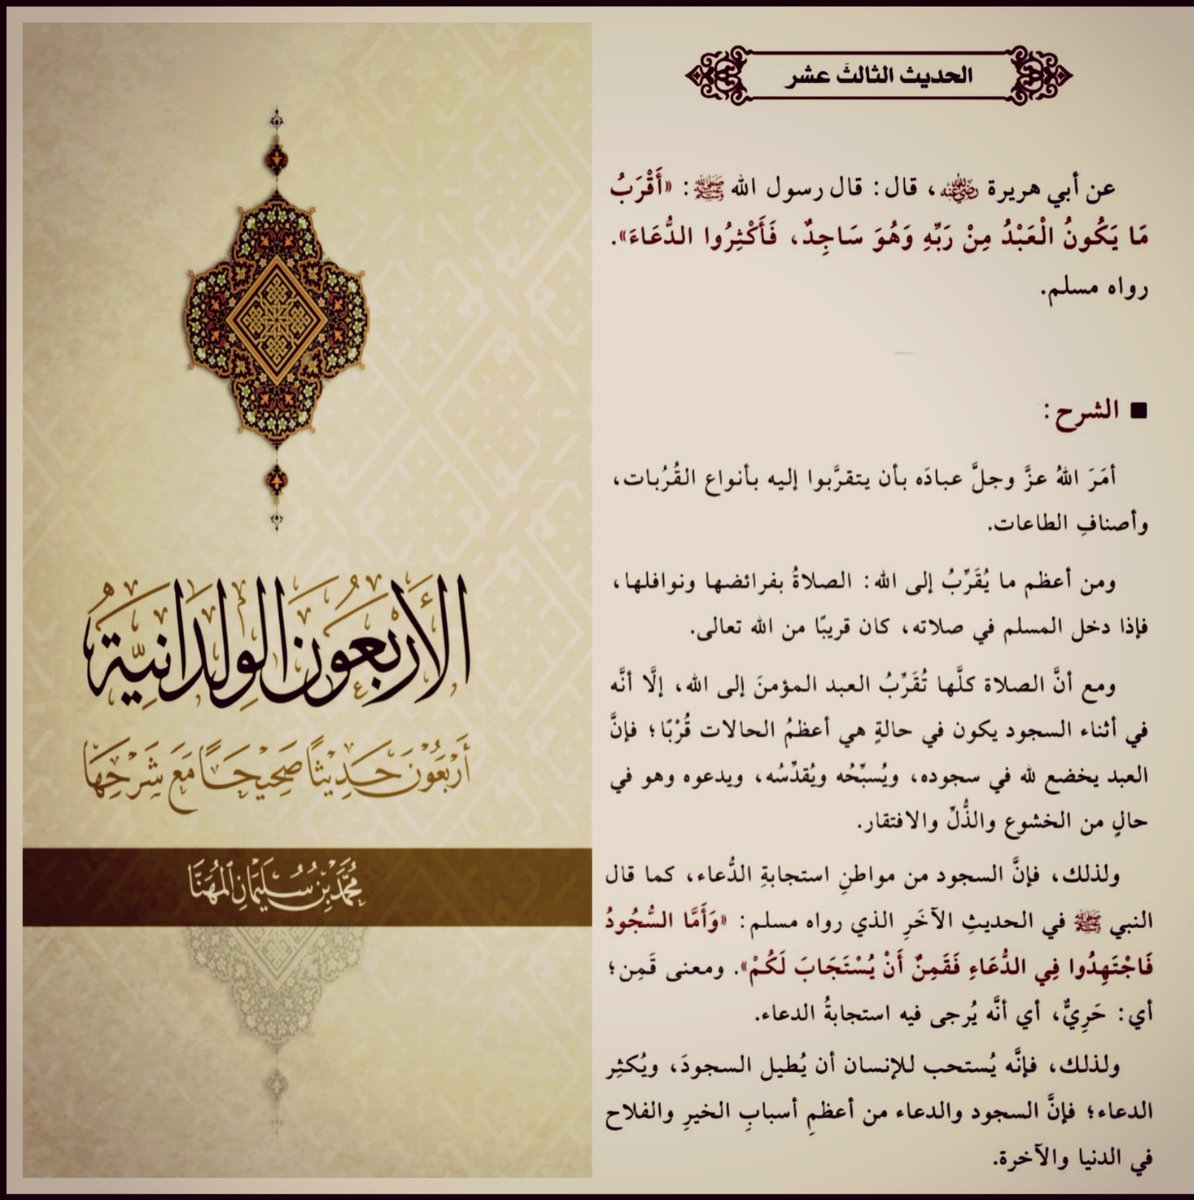 الحديث الثالث عشر
عن أبي هريرة رضي الله عنه، قال: قال رسول الله ﷺ: «أَقْرَبُ
مَا يَكُونُ الْعَبْدُ مِنْ رَبِّهِ وَهُوَ سَاجِدٌ، فَأَكْثِرُوا الدُّعَاءَ».
رواه مسلم.
■ الشرح:
أمَرَ اللهُ عزَّ وجلَّ عبادَه بأن يتقرَّبوا إليه بأنواع القُرُبات،
وأصنافِ الطاعات.
ومن أعظم ما يُقَرِّبُ إلى الله: الصلاةُ بفرائضها ونوافلها،
فإذا دخل المسلم في صلاته، كان قريبًا من الله تعالى.
ومع أنَّ الصلاة كلَّها تُقَرِّبُ العبد المؤمنَ إلى الله، إلَّا أنَّه
في أثناء السجود يكون في حالةٍ هي أعظمُ الحالات قُرْبًا؛ فإنَّ
العبد يخضع لله في سجوده، ويُسبِّحُه ويُقدِّسُه، ويدعوه وهو في
حالٍ من الخشوع والذُّلِّ والافتقار.
ولذلك، فإنَّ السجود من مواطنِ استجابةِ الدُّعاء، كما قال
النبي ﷺ في الحديثِ الآخَرِ الذي رواه مسلم: «وَأَمَّا السُّجُودُ
فَاجْتَهِدُوا فِي الدُّعَاءِ فَقَمِنٌ أَنْ يُسْتَجَابَ لَكُمْ». ومعنى قَمِن؛
أي: حَرِيٌّ، أي أنَّه يُرجى فيه استجابةُ الدعاء.
ولذلك، فإنَّه يُستحب للإنسان أن يُطيل السجودَ، ويُكثِر
الدعاء؛ فإنَّ السجود والدعاء من أعظمِ أسبابِ الخيرِ والفلاح
في الدنيا والآخرة.
الأَرْبَعُونَ الوِلْدَانِيَّةُ
أَرْبَعُونَ حَدِيثًا صَحِيحًا مَعَ شَرْحِهَا
مُحَمَّدُ بْنُ سُلَيْمَانَ الْمُهَنَّا